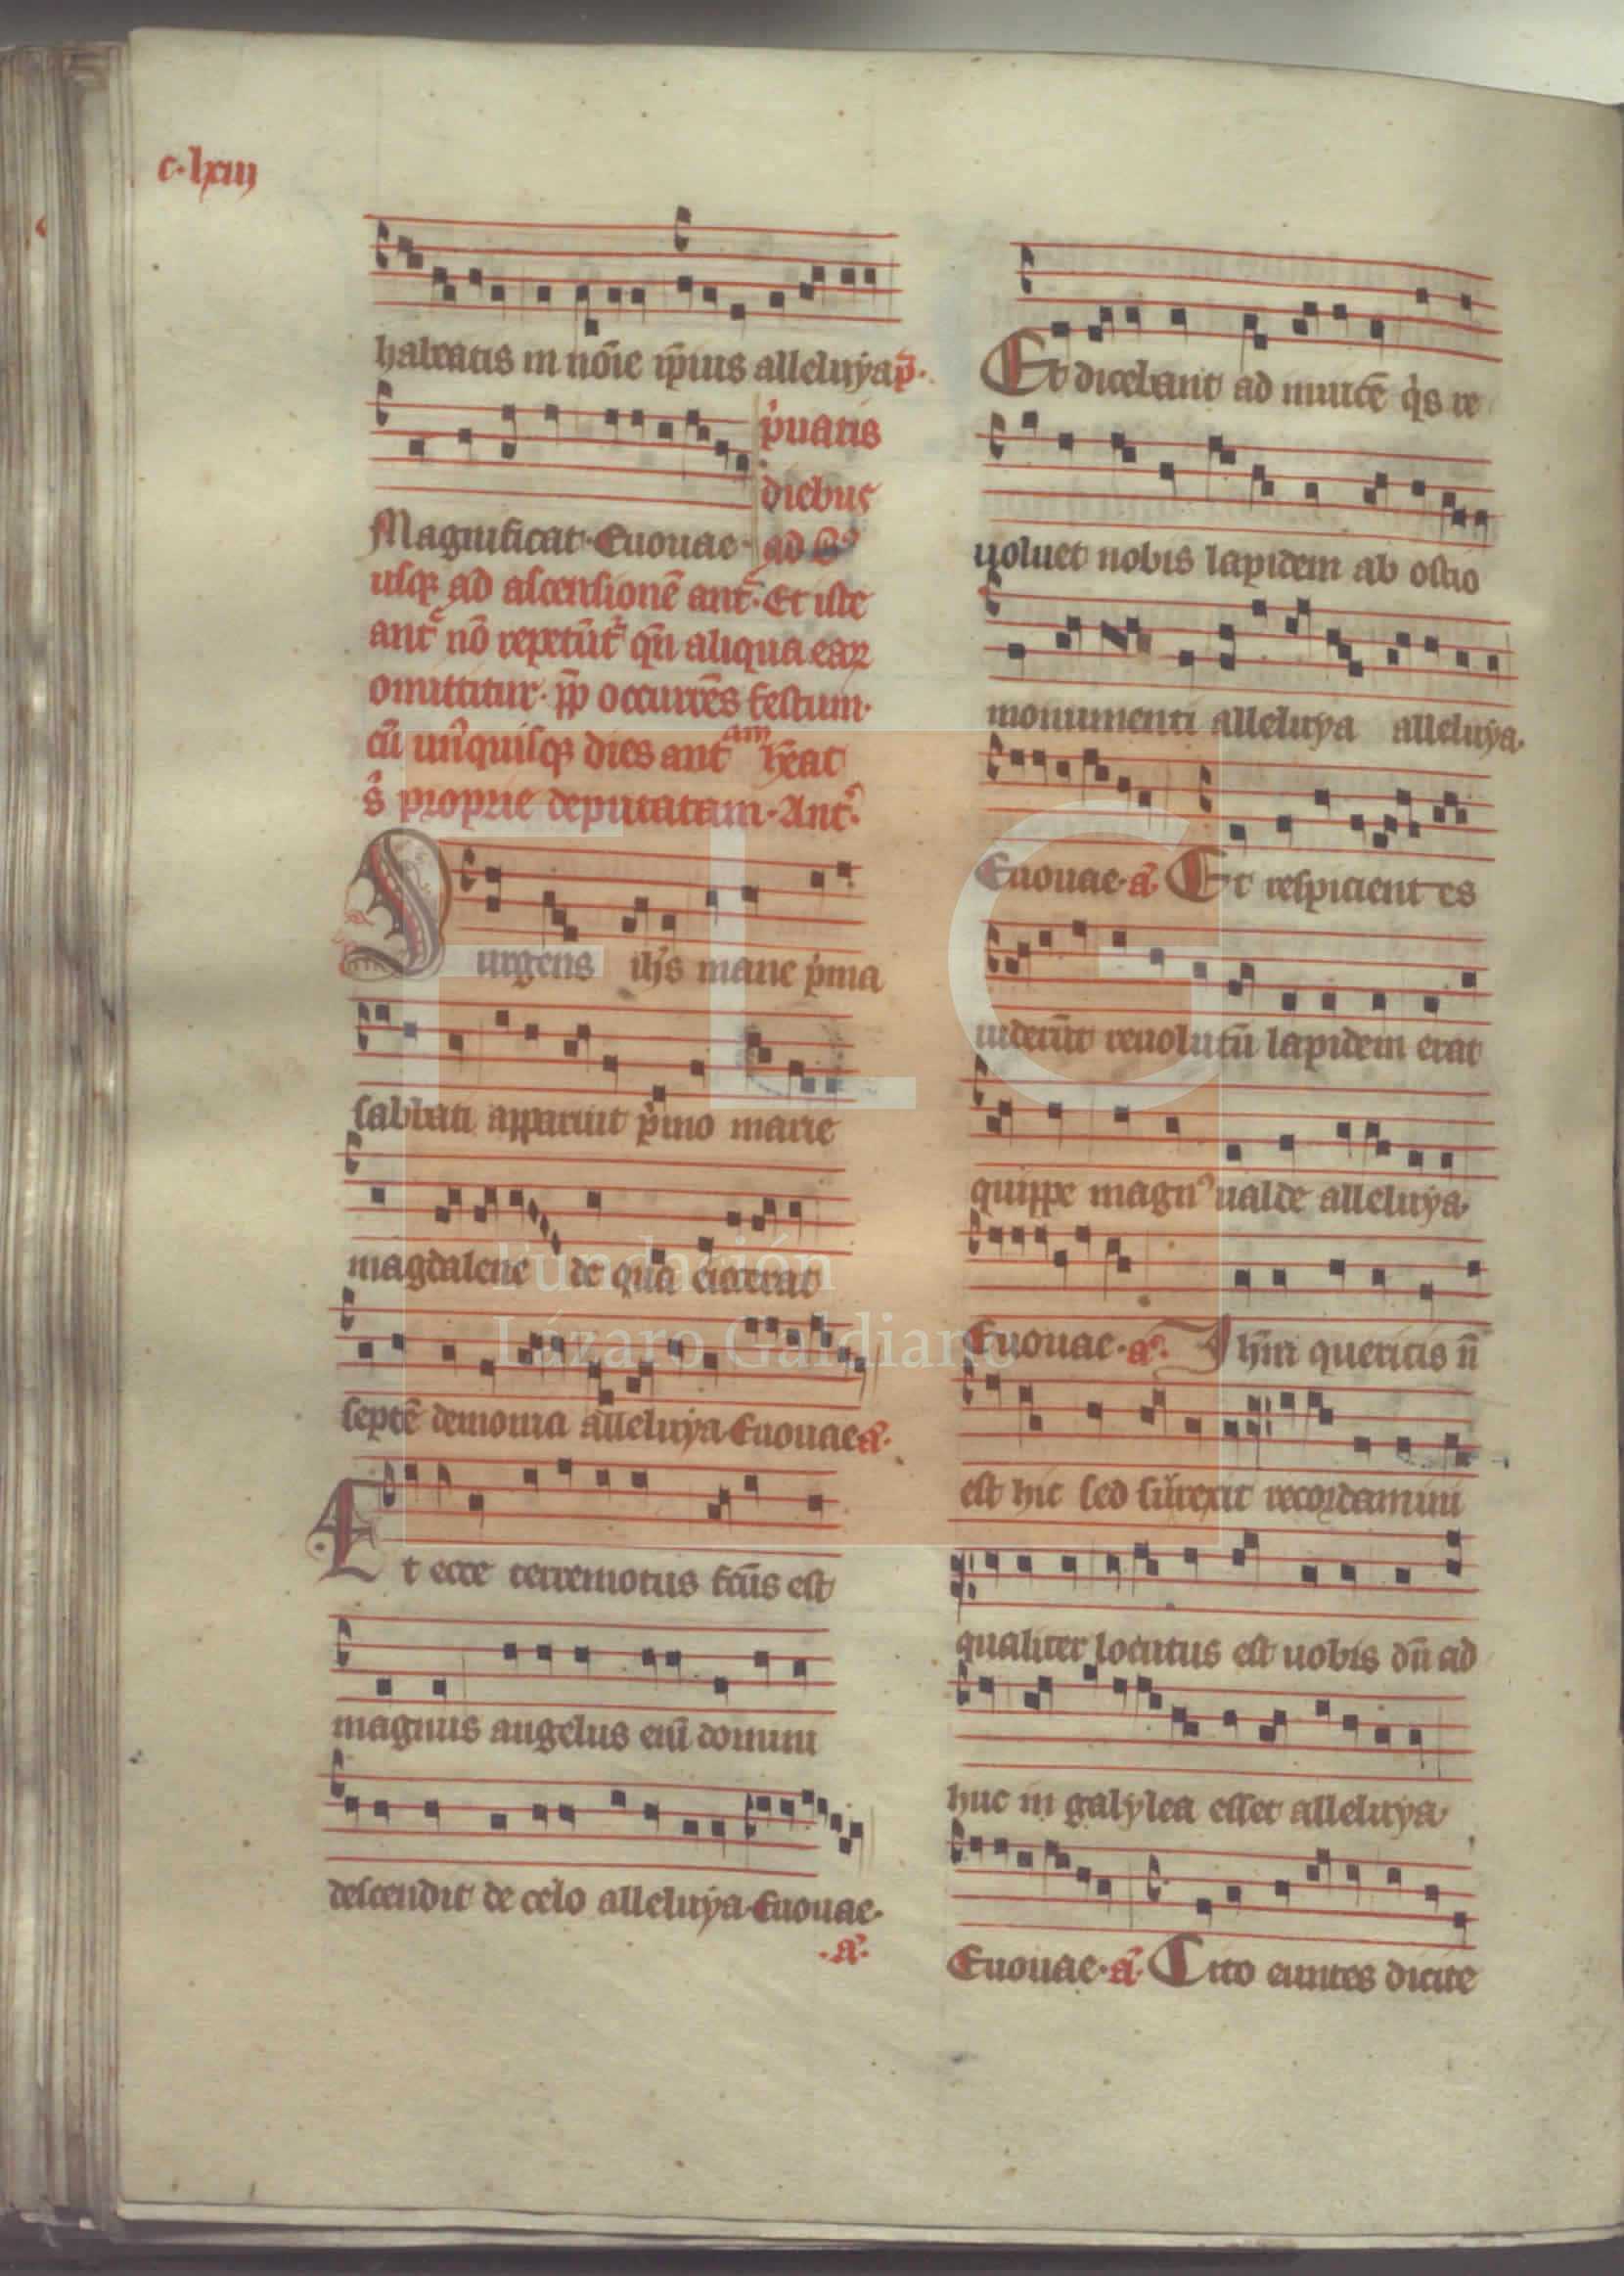 c·lxiij
habeatis in nōie ip̄ius alleluya p̄·
p̍uatis
diebus
Magnificat·Euouae· ad B⁹
usq; ad ascensionē ant̄· Et iste
ant̄ nō repetūt᷑ qn̄ aliqua eaꝝ
omittitur· ꝓp occurrēs festum·
cū un̍quisq; dies ant̄ am hēat
s̍ proprie deputatam· Ant̄·
Surgens ih̄s mane p̍ma
sabbati apparuit p̍mo marie
magdalene de qua eiecerat
septē demonia alleluya·Euouae a᷑·
Et ecce terremotus fc̄us est
magnus angelus eni̅ domini
descendit de celo alleluya·Euouae·
·a᷑·
Et dicebant ad inuicē q̍s re
uoluet nobis lapidem ab ostio
monumenti alleluya alleluya·
Euouae·a᷑· Et respicientes
uiderūt reuolutū lapidem erat
quippe magn⁹ ualde alleluya·
Euouae·a᷑· Ihm̄ queritis n̄
est hic sed surrexit recordamini
qualiter locutus est uobis dū ad
huc in galylea esset alleluya·
Euouae·a᷑· Cito euntes dicite
FLG
Fundación
Lázaro Galdiano